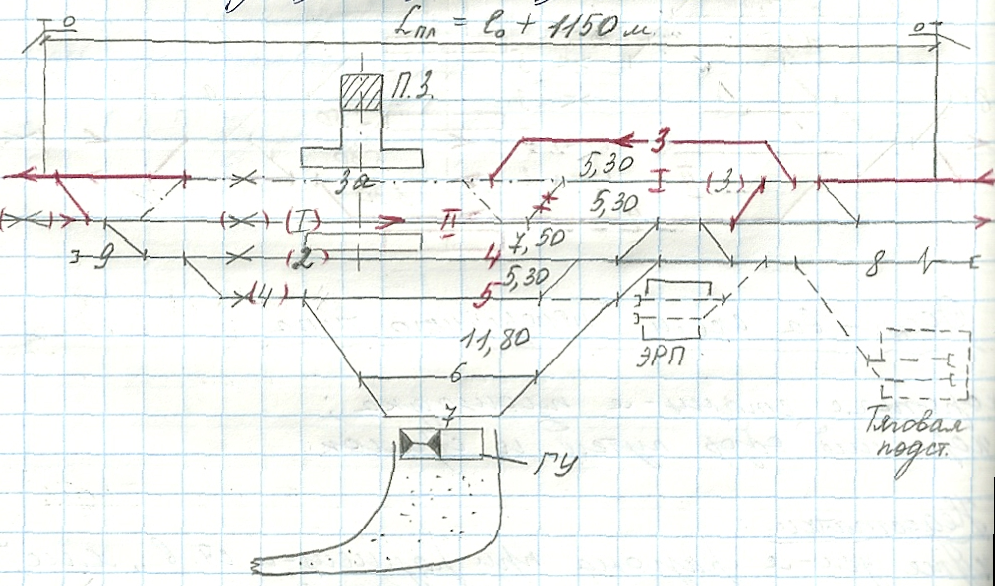 Lпл = l₀ + 1150 м
П.З.
3
3а
5,30
I
(3)
(I)
II
5,30
7,50
9
(2)
4
8
(4)
5
5,30
11,80
ЭРП
6
7
Тяговая
подст.
ГУ